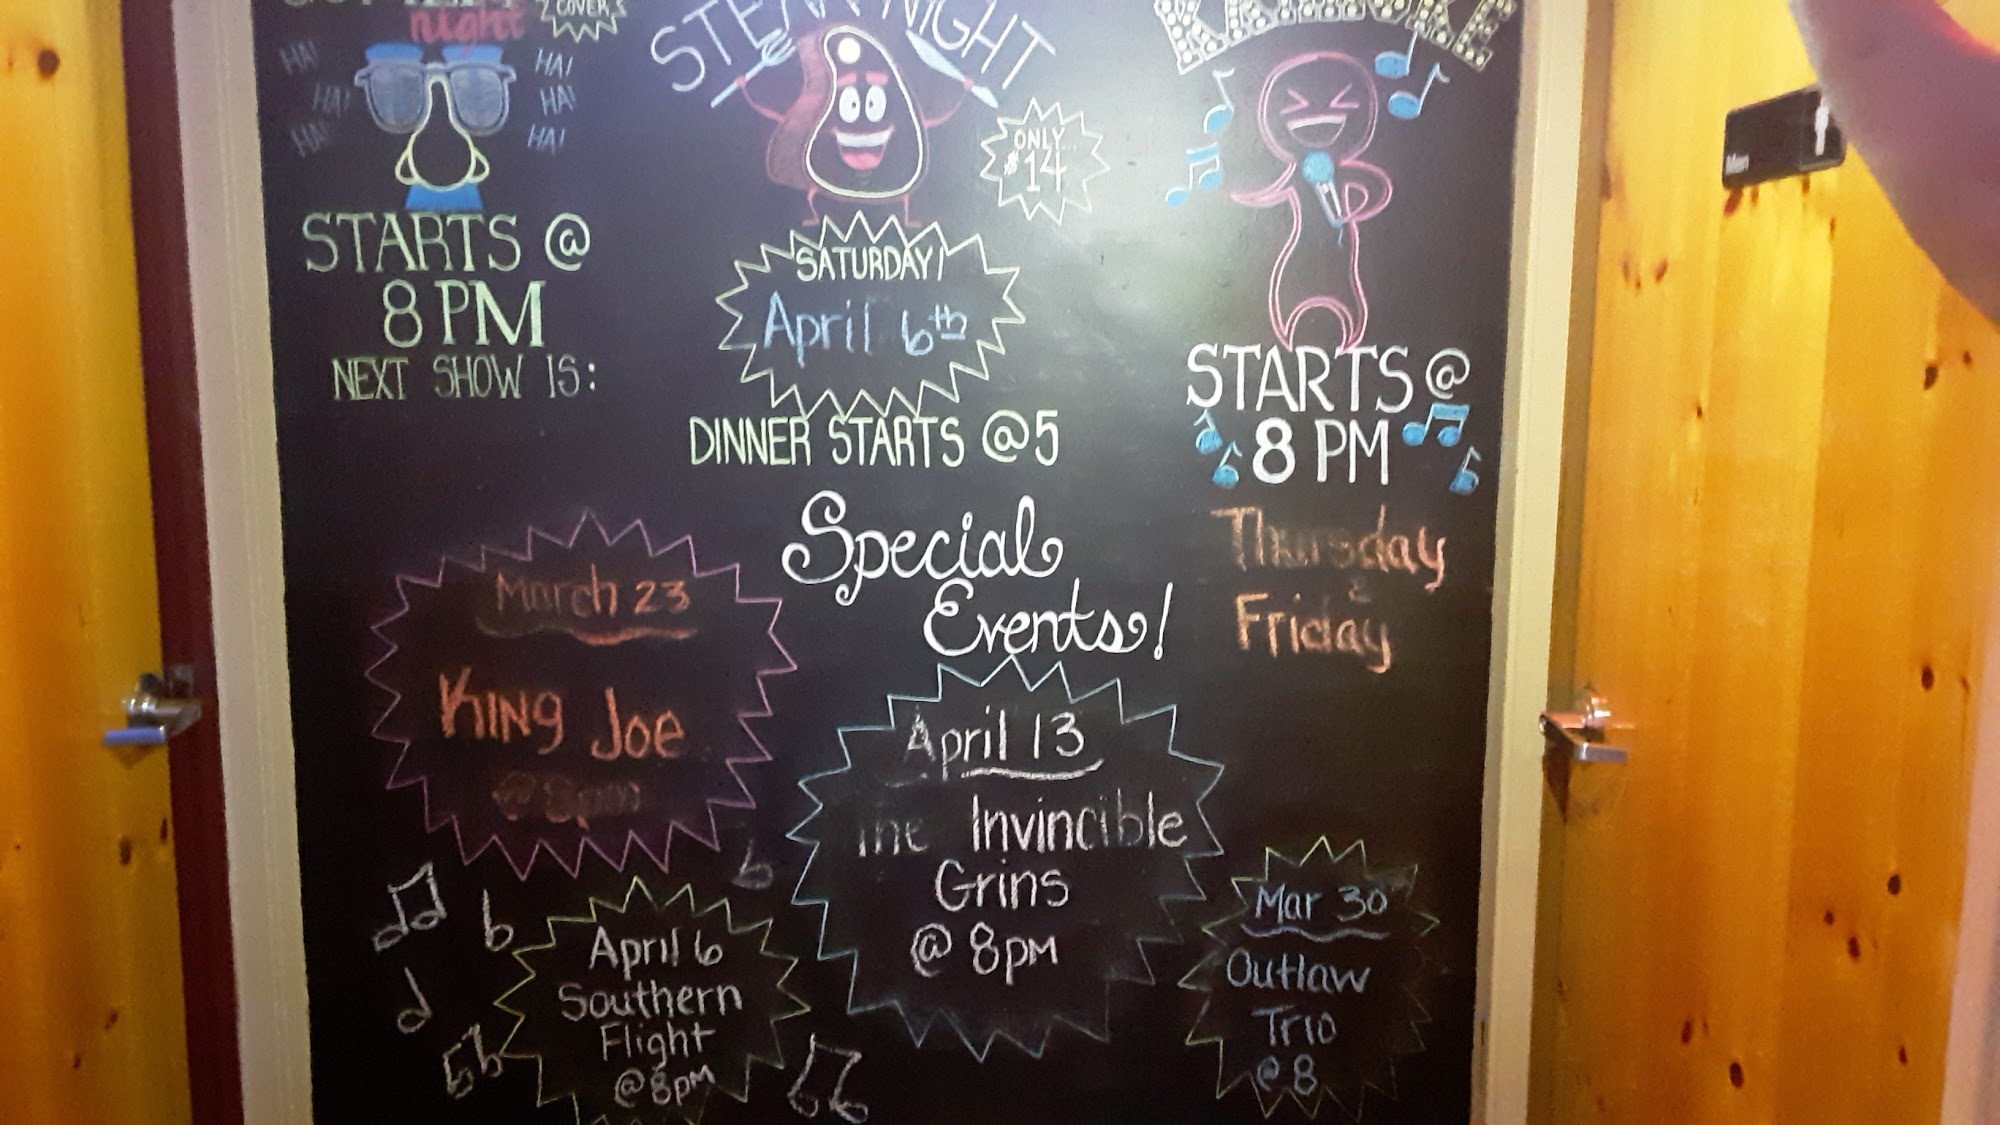 night
2 COVERS
HA!
HA!
HA!
HA!
HA!
HA!
STARTS @
8 PM
NEXT SHOW IS:
STEAK NIGHT
ONLY...
$14
SATURDAY!
April 6th
DINNER STARTS @5
KARAOKE
STARTS @
8 PM
Thursday
&
Friday
Men
Special
Events!
March 23
KING JOE
@ 8pm
April 13
The Invincible
Grins
@ 8pm
April 6
Southern
Flight
@ 8pm
Mar 30
Outlaw
Trio
@ 8